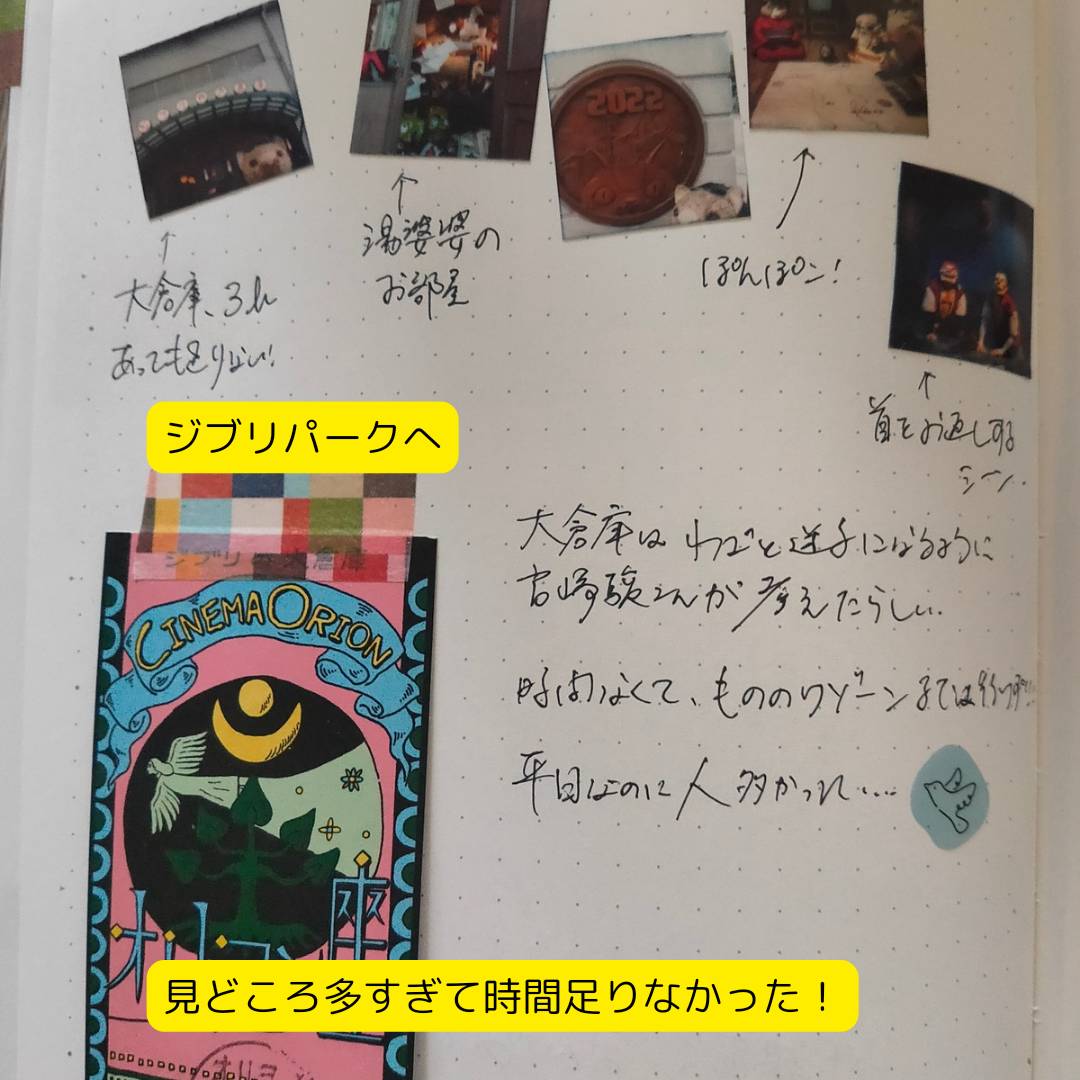 2022
大倉庫、3h
あっても足りない!
湯婆婆の
お部屋
ぽんぽこ!
首をお返しする
シーン
ジブリパークへ
ジブリの大倉庫
CINEMA ORION
オリヲン座
大倉庫はわざと迷子になるように
宮崎駿さんが考えたらしい…
時間なくて、もののけゾーンまでは行けず…
平日なのに人多かった…
見どころ多すぎて時間足りなかった！
オリヲン